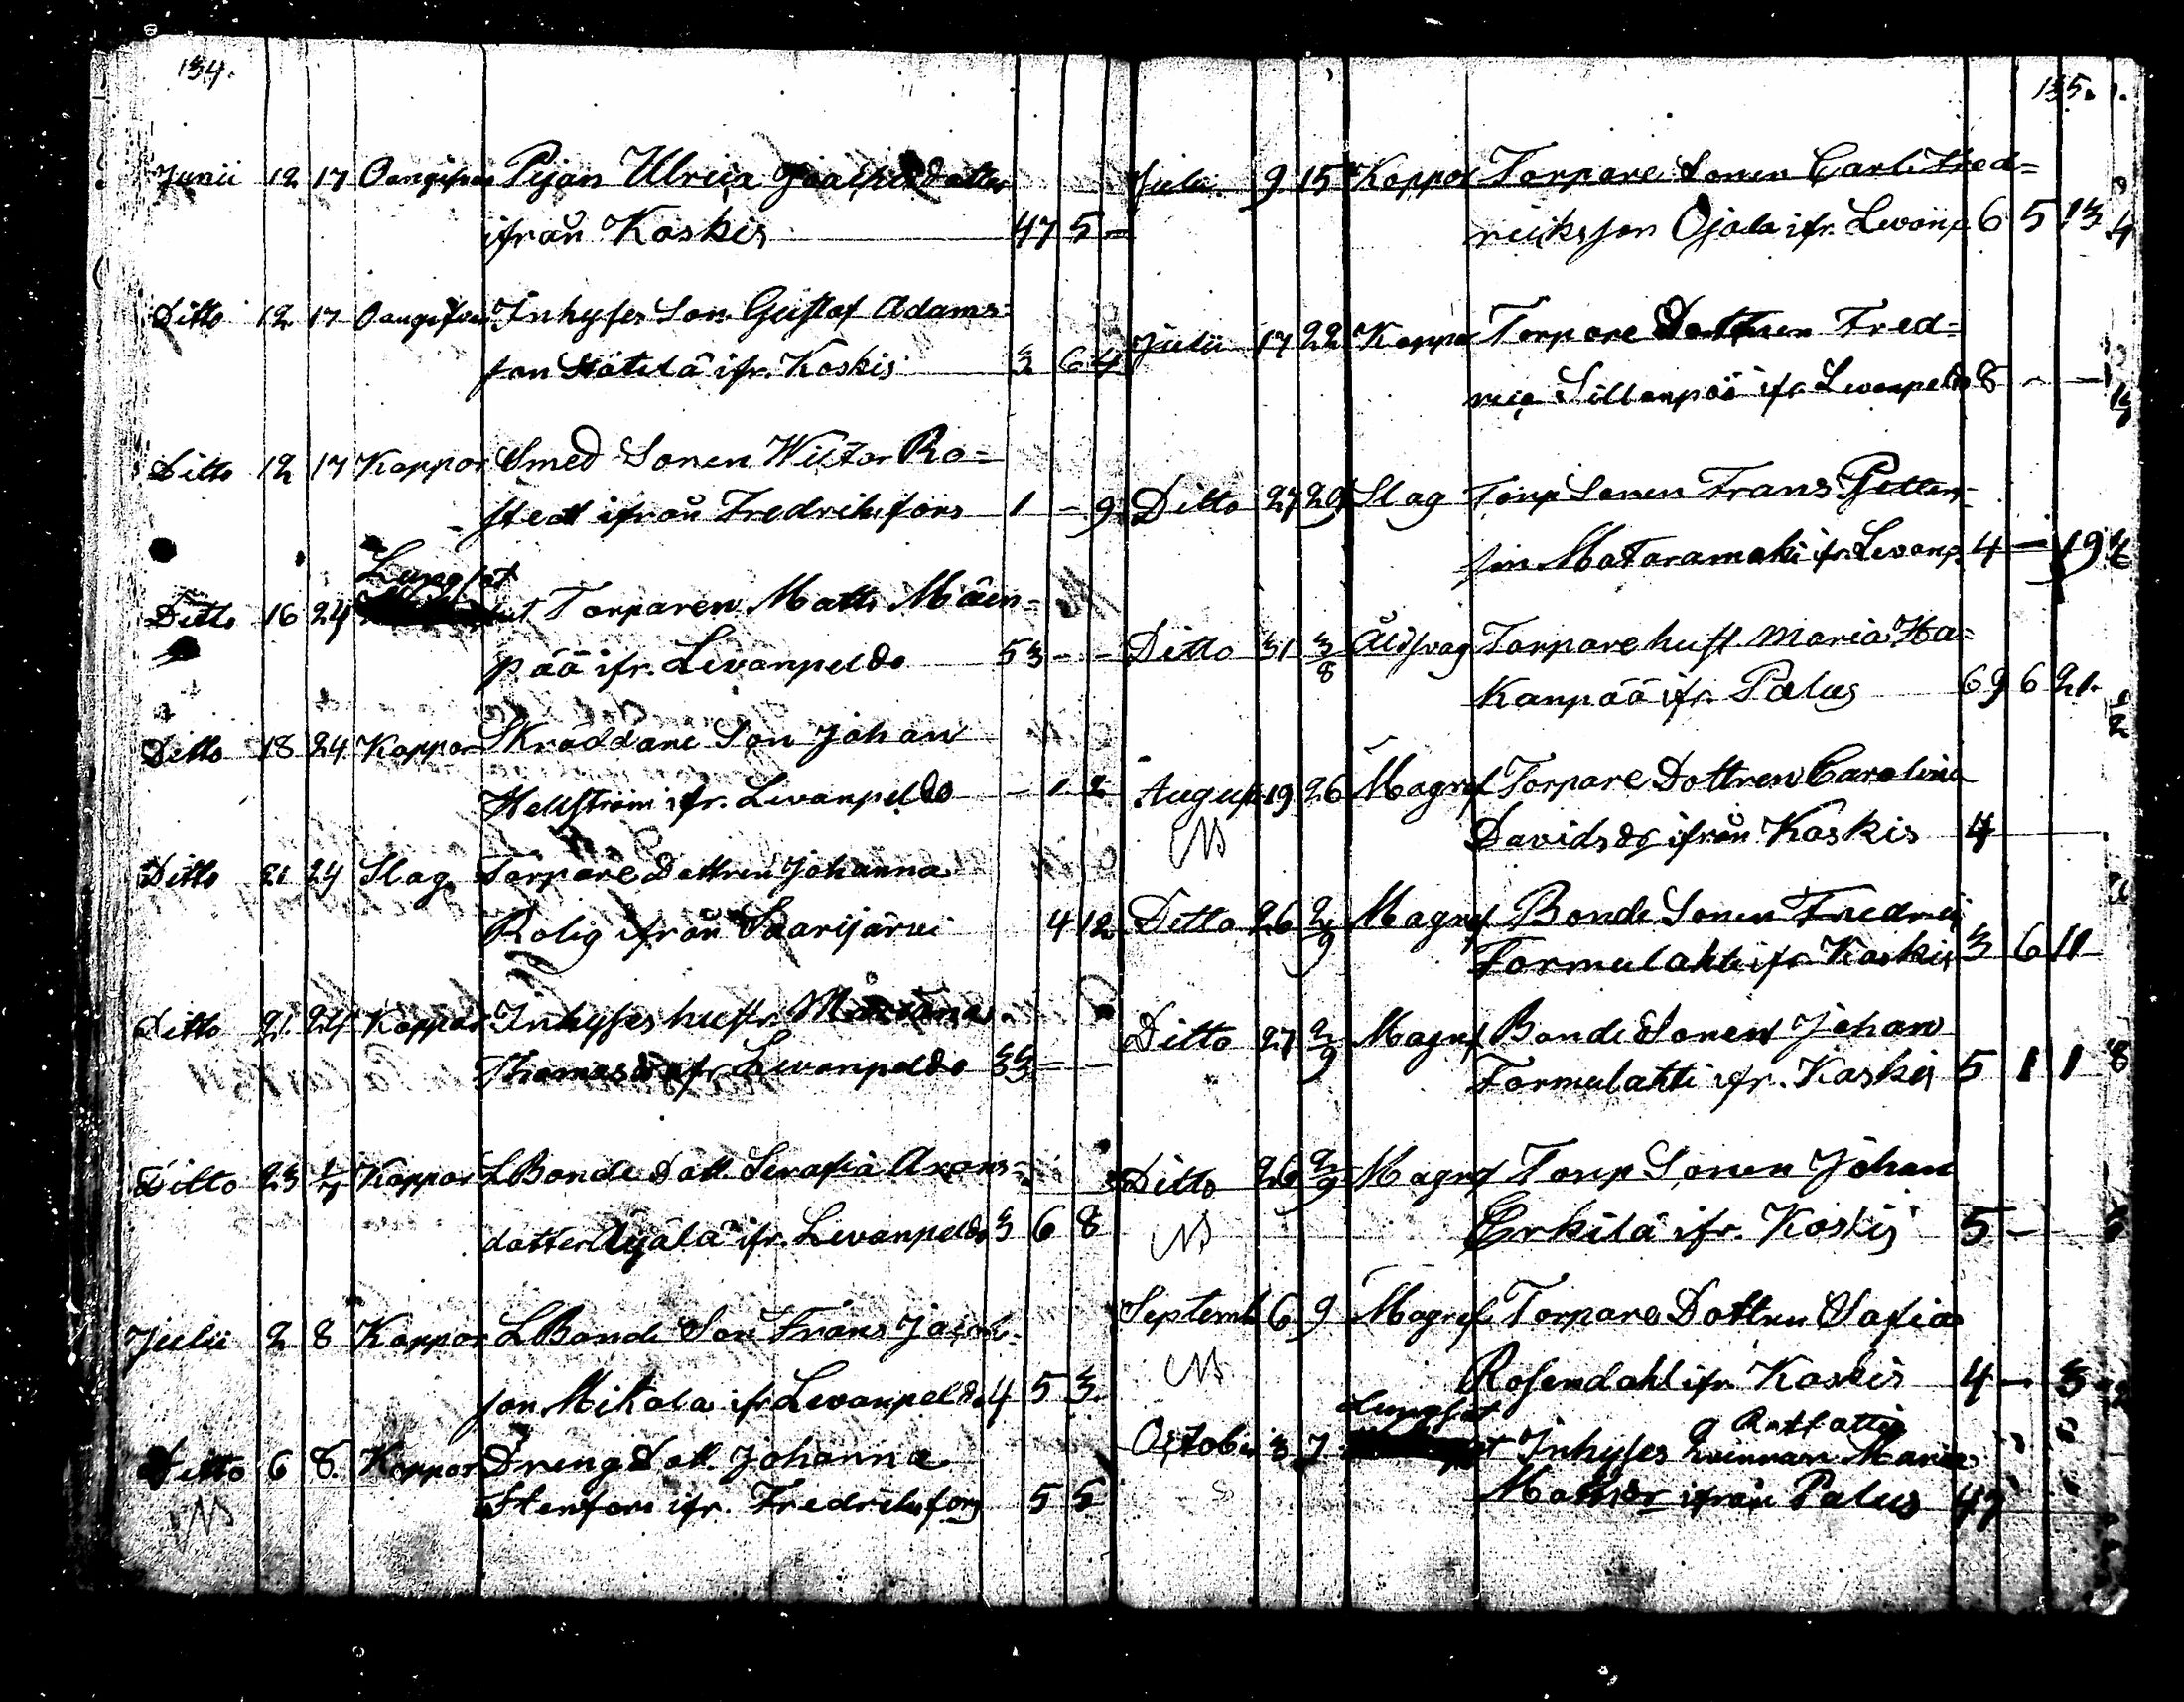 134.
Junii 12 17 Oangifven Pijan Ulrica dotter
ifrån Koskis 47 5 -
Ditto 12 17 Oangifven Inhyses Son Gustaf Adams=
son ifr. Koskis 3 6 4
Ditto 12 17 Koppor Smed Sonen Wictor Ro=
stedt ifrån Fredriksfors 1 - 9
Lungsot
Ditto 16 24 Torparen Matts Mäen=
pää ifr. Levanpeldo 53 - -
Ditto 18 24 Koppor Skräddare Son Johan
Hellström ifr. Levanpeldo - 1 2
Ditto 21 24 Slag Torpare Dottren Johanna
Rolig ifrån Saarijärvi 4 12
Ditto 21 24 Koppor Inhyses hustr.
Thomasd ifr Levanpeldo 33 - -
Ditto 23 1/7 Koppor LBonde Dott. Serafia Axons=
dotter Äyälä ifr. Levanpeldo 3 6 8
Julii 2 8 Koppor LBonde Son Frans Jacob=
son Mikola ifr Levanpeldo 4 5 3
Ditto 6 8. Koppor Dreng Dott. Johanna
Stenfors ifr. Fredriksfors 5 5
NB
135.
Julii 9 15 Koppor Torpare Sonen Carl Fred=
riksson Ojala ifr. Levanp 6 5 13
Julii 17 22 Koppor Torpare Dottren Fred=
rica Sillanpää ifr Levanpeldo 8 - -
Ditto 27 29 Slag Torp Sonen Frans Petters=
son Mataramäki ifr. Levanp 4 - 19
Ditto 31 3/8 Torpare hust. Maria Ha=
kanpää ifr. Palus 69 6 21.
August 19 26 Magref Torpare Dottren Carolina
NB Davidsdr ifrån Koskis 4
Ditto 26 2/9 Magref Bonde Sonen Fredric
Formulahti ifr Koskis 3 6 11
Ditto 27 2/9 Magref Bonde Sonen Johan
Formulahti ifr. Koskis 5 1 1
Ditto 26 2/9 Magref Torp Sonen Johan
NB Erkilä ifr. Koskis 5 -
Septemb 6 9 Magref Torpare Dottren Sofia
NB Rosendahl ifr Koskis 4 - 3
Lungsot
October 3 7 Inhyses Qvinnan Maria
Mattsdr ifrån Palus 49